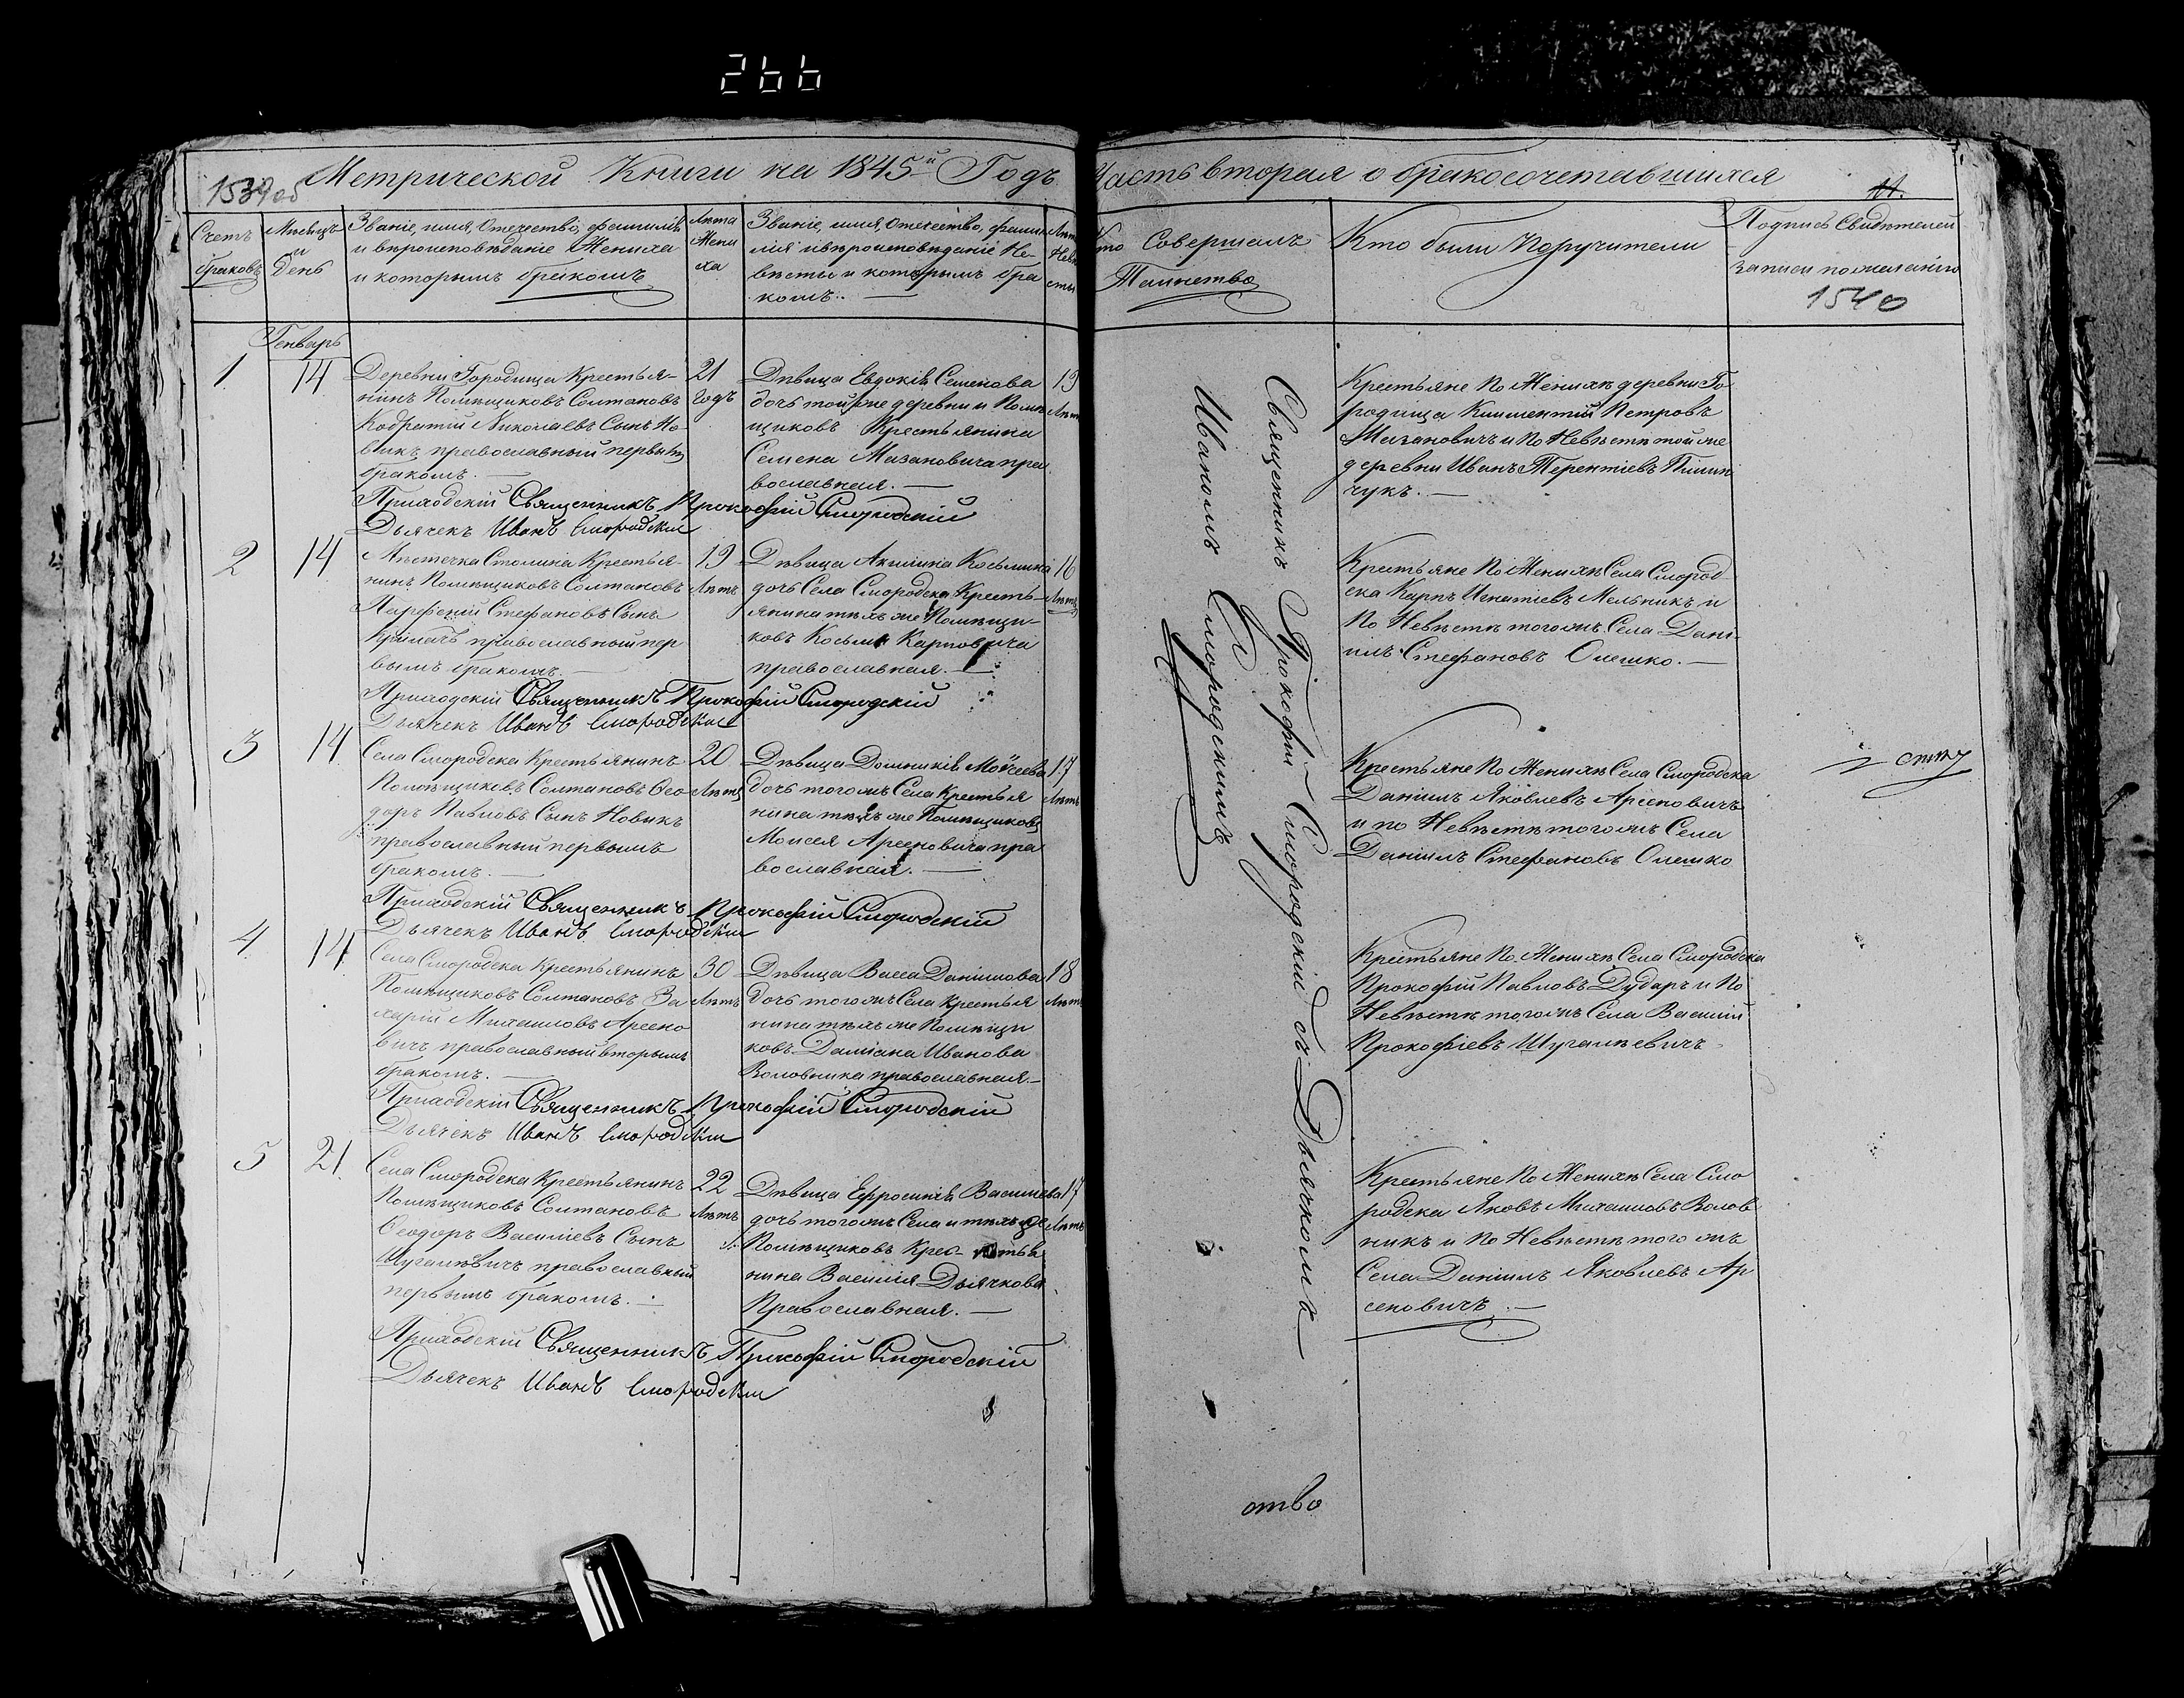 266
Метрической Книги на 1845й Годъ
1539об
Счетъ браковъ
Мѣсяцъ и День
Званіе, имя, Отечество, фамилія
и вѣроисповѣданіе Жениха
и которымъ бракомъ
Лѣта Жениха
Званіе, имя, Отечество, фамилія
и вѣроисповѣданіе Невѣсты
и которымъ бракомъ.
Генварь
1 14
Деревни Городища Крестья-
нинъ Помѣщиковъ Солтановъ
Кодратій Николаевъ Сынъ Но-
викъ православный первымъ
бракомъ. —
21
годъ
Дѣвица Евдокія Семенова
дочь тойже деревни и Помѣ
щиковъ Крестьянина
Семена Мазановича пра
вославная. —
19
Лѣтъ
Приходскій Священникъ Прокофій Смородскій
Дьячекъ Иванъ Смородскій
2 14
Мѣстечка Столина Крестья-
нинъ Помѣщиковъ Солтановъ
Парфеній Стефановъ Сынъ
православный пер
вымъ бракомъ. —
19
Лѣтъ
Дѣвица Акилина Косьмина
дочь Села Смородска Кресть-
янина тѣхъ же Помѣщи-
ковъ Косьмы Карповича
православная. —
16
Лѣтъ
Приходскій Священникъ Прокофій Смородскій
Дьячекъ Иванъ Смородскій
3 14
Села Смородска Крестьянинъ
Помѣщиковъ Солтановъ Ѳео
доръ Павловъ Сынъ Новикъ
православный первымъ
бракомъ. —
20
Лѣтъ
Дѣвица Домникія Моѵсеева
дочь тогожъ Села Крестья
нина тѣхъ же Помѣщиковъ
Моисея Арсеновича пра
вославная. —
17
Лѣтъ
Приходскій Священникъ Прокофій Смородскій
Дьячекъ Иванъ Смородскій
4 14
Села Смородска Крестьянинъ
Помѣщиковъ Солтановъ За
харій Михаиловъ Арсено
вичъ православный вторымъ
бракомъ. —
30
Лѣтъ
Дѣвица Васса Даніилова
дочь тогожъ Села Крестья
нина тѣхъ же Помѣщи
ковъ Даміана Иванова
Воловника православная. —
18
Лѣтъ
Приходскій Священникъ Прокофій Смородскій
Дьячекъ Иванъ Смородскій
5 21
Села Смородска Крестьянинъ
Помѣщиковъ Солтановъ
Ѳеодоръ Василіевъ Сынъ
Шугалѣвичъ православный
первымъ бракомъ. —
22
Лѣтъ
Дѣвица Ефросинія Василіева
дочь тогожъ Села и тѣхъ же
Помѣщиковъ Крес- тья
нина Василія Дьячкова
Православная. —
17
Лѣтъ
Приходскій Священникъ Прокофій Смородскій
Дьячекъ Иванъ Смородскій
Часть вторая о бракосочетавшихся
Кто Совершалъ
Таинство
Кто были Поручители
Подпись Свидѣтелей
записи по желанію
1540
Священникъ Прокофій Смородскій съ Дьячкомъ
Иваномъ Смородскимъ
Крестьяне по Женихѣ деревни Го
родища Климентій Петровъ
Мазановичъ и по Невѣстѣ той же
деревни Иванъ Терентіевъ Пилип
чукъ. —
Крестьяне по Женихѣ Села Смород
ска Карпъ Игнатіевъ Мельникъ и
по Невѣстѣ тогожъ Села Дані-
илъ Стефановъ Олешко. —
Крестьяне по Женихѣ Села Смородска
Даніилъ Яковлевъ Арсеновичъ
и по Невѣстѣ тогожъ Села
Даніилъ Стефановъ Олешко
Крестьяне по Женихѣ Села Смородска
Прокофій Павловъ Дударъ и по
Невѣстѣ тогожъ Села Василій
Прокофіевъ Шугалѣевичъ
Крестьяне по Женихѣ Села Смо
родска Яковъ Михаиловъ Волов
никъ и по Невѣстѣ того жъ
Села Даніилъ Яковлевъ Ар
сеновичъ. —
ство